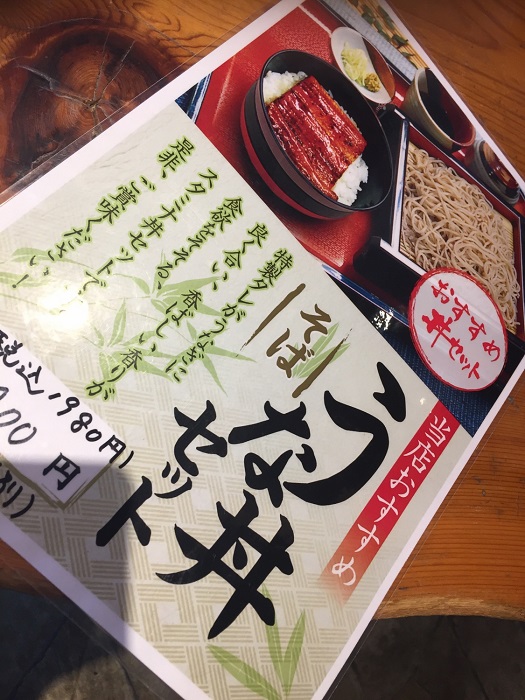 おすすめ
丼セット
当店おすすめ
うな丼
セット
そば
特製タレがうなぎに
良く合い、香ばしい香りが
食欲をそそる、
スタミナ丼セットです。
是非、ご賞味ください!
税込1980円)
00円
別)